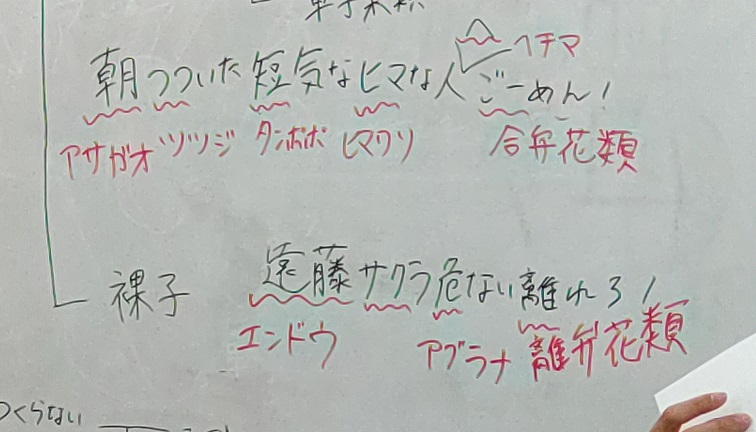 へ
ヘチマ
朝つついた短気なヒマな人ごーめん!
アサガオ ツツジ タンポポ ヒマワリ 合弁花類
裸子 遠藤サクラ危ない離れろ!
エンドウ アブラナ 離弁花類
つくらない